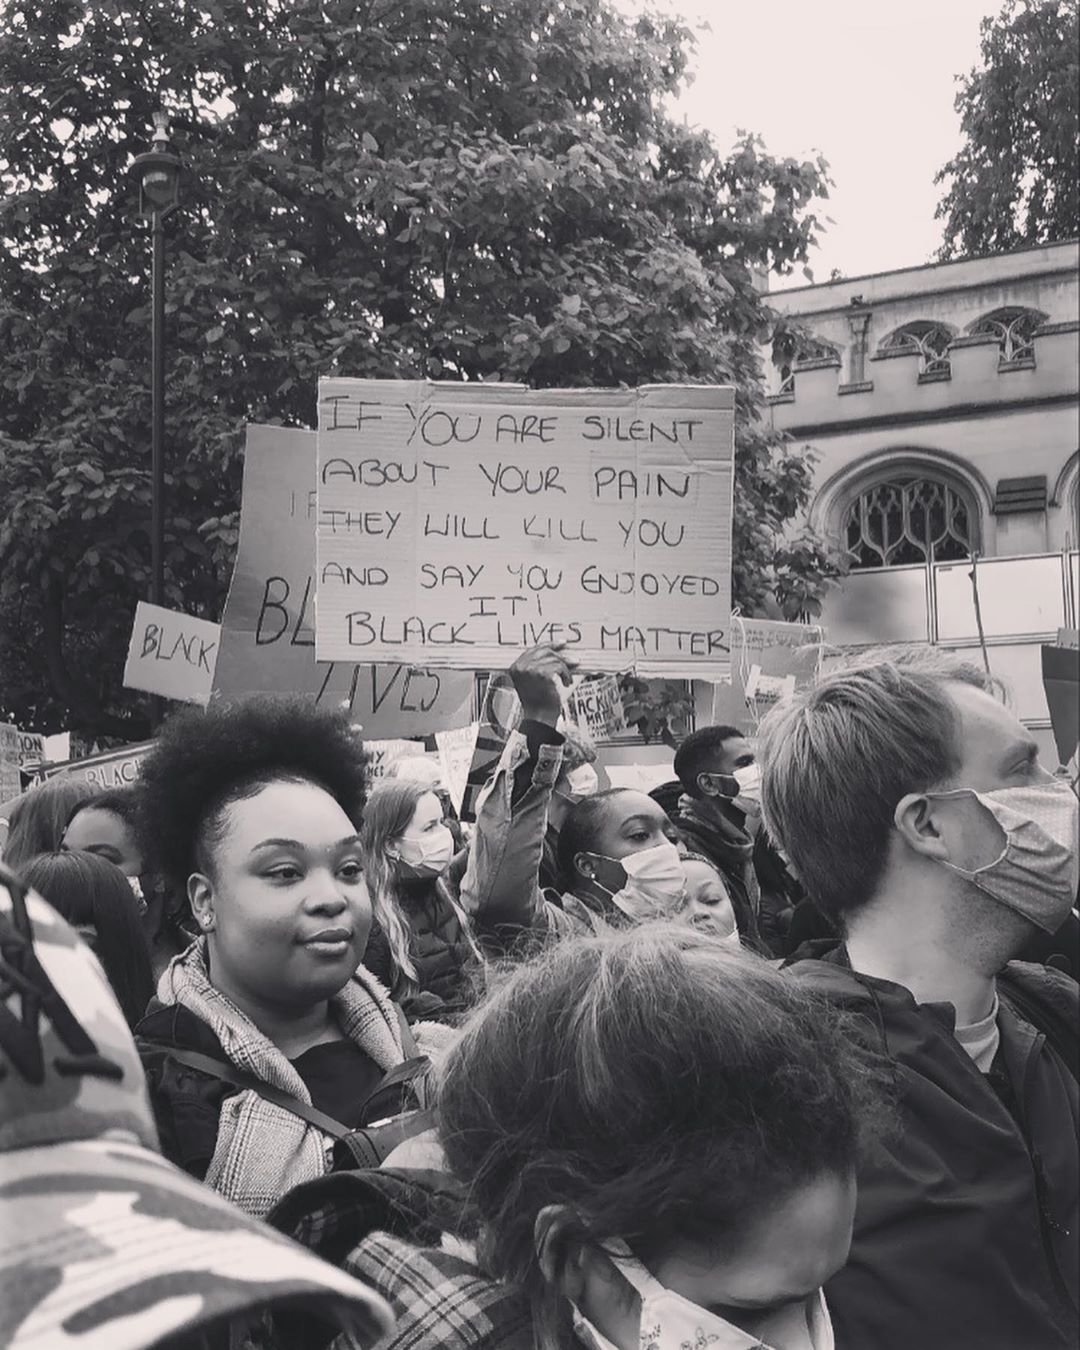 IF YOU ARE SILENT
ABOUT YOUR PAIN
THEY WILL KILL YOU
AND SAY YOU ENJOYED
IT!
BLACK LIVES MATTER
IF
BL
LIVES
BLACK
BLACK